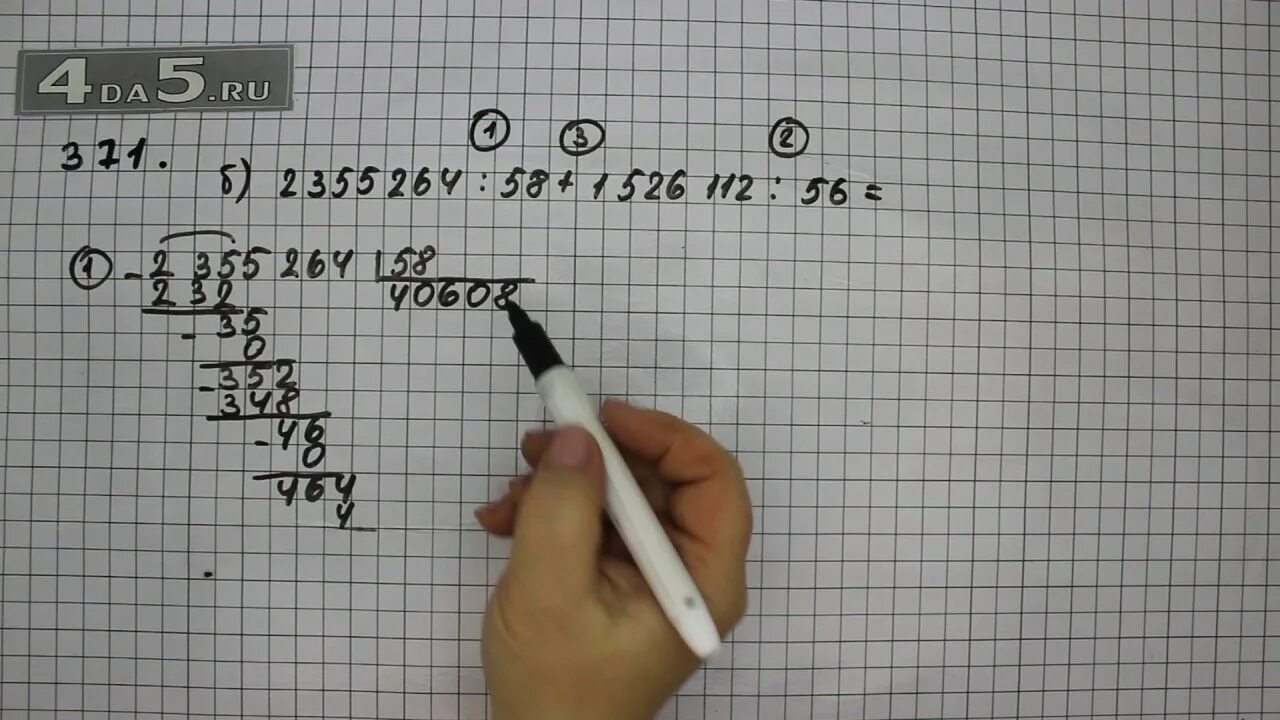 4DA5.RU
371.
① ③ ②
б) 2355264 : 58 + 1526112 : 56 =
① - 2355264 | 58
232 40608
- 35
0
- 352
348
- 46
0
464
4